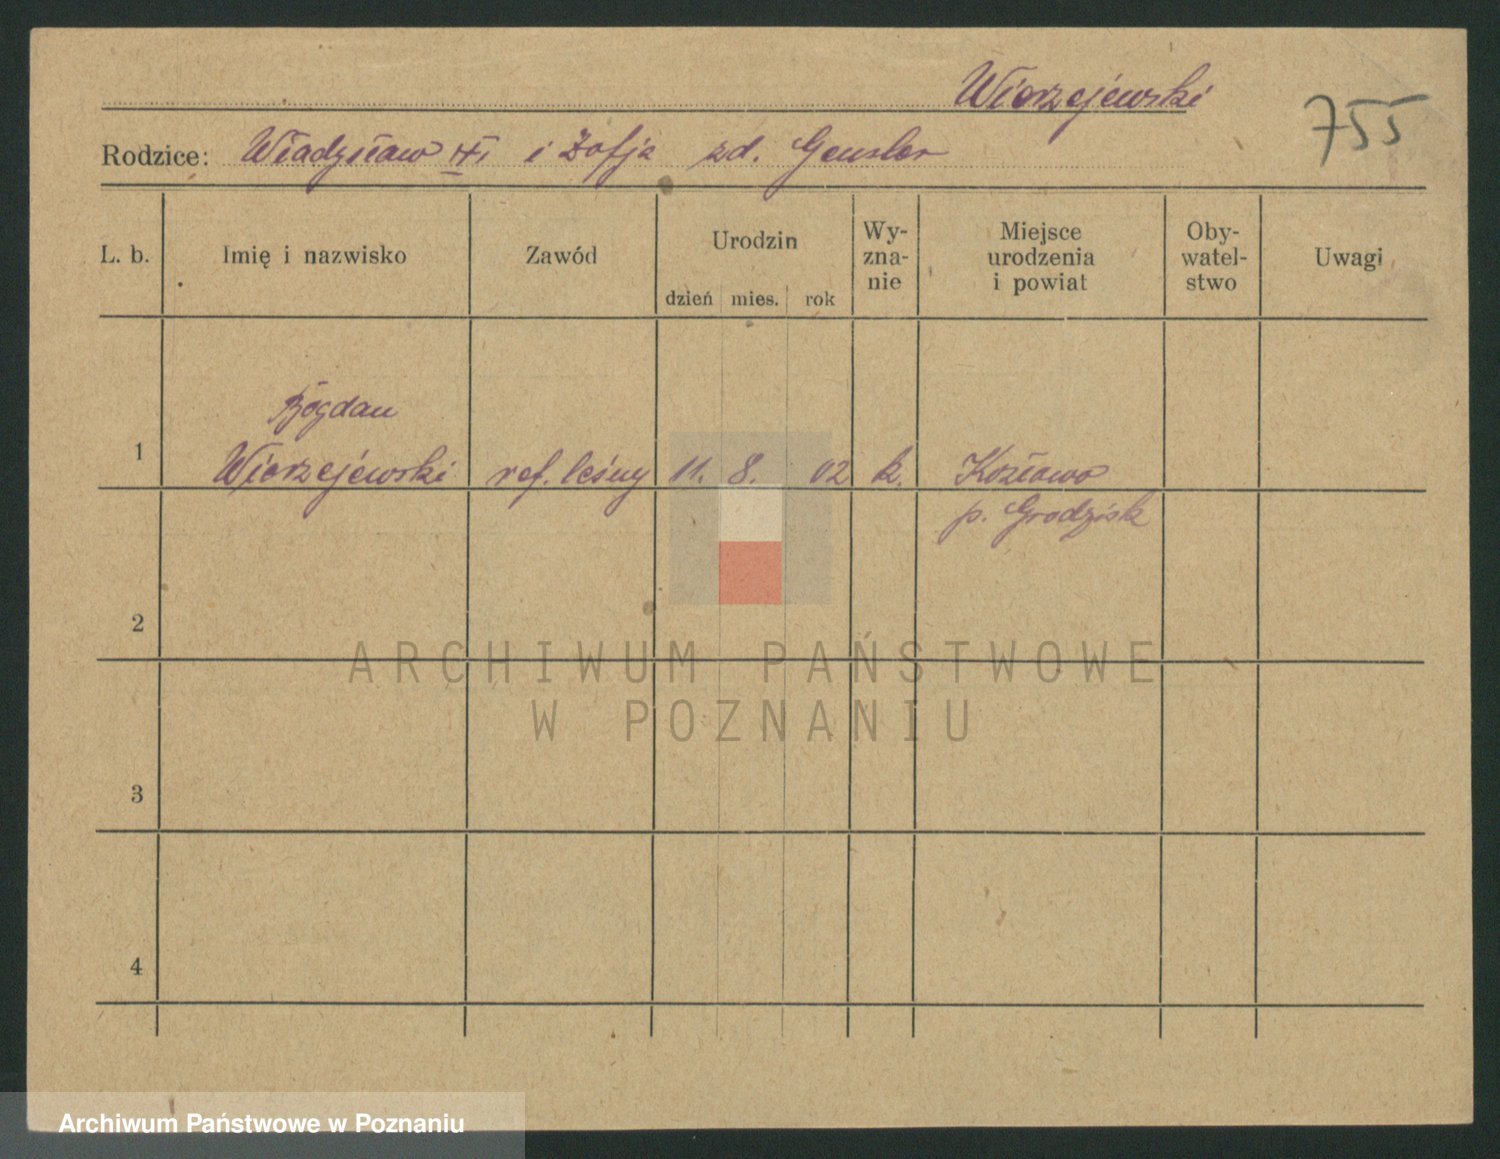 Wierzejewski
755
Rodzice: Władysław i Zofja zd. Gensler
L. b. Imię i nazwisko Zawód Urodzin dzień mies. rok Wy-zna-nie Miejsce urodzenia i powiat Oby-watel-stwo Uwagi
Bogdan
1 Wierzejewski ref. leśny 11. 8. 02 k. Kozłowo
p. Grodzisk
2
ARCHIWUM PAŃSTWOWE
W POZNANIU
3
4
Archiwum Państwowe w Poznaniu